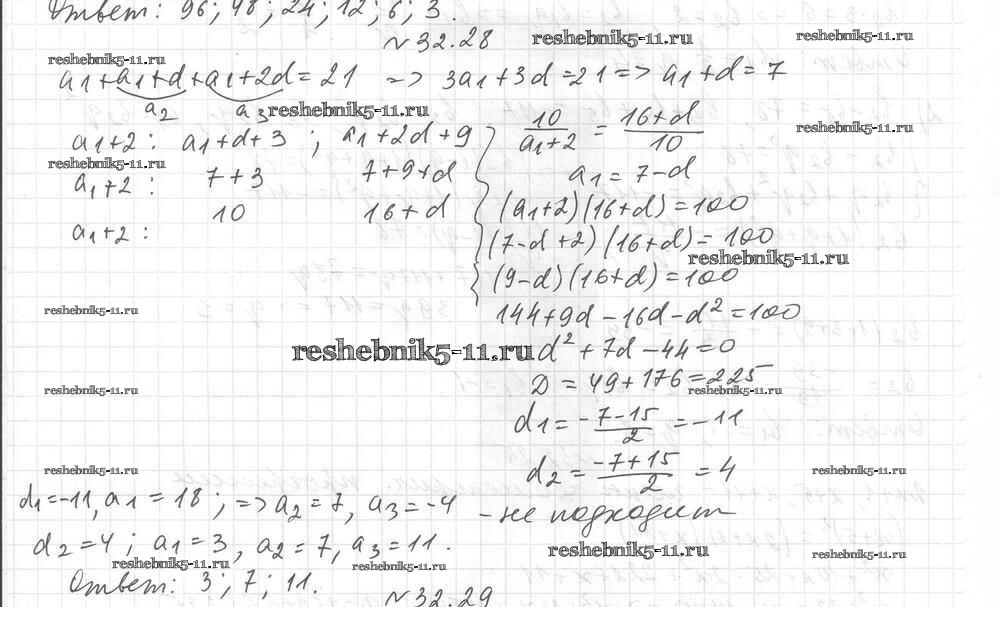 Ответ: 96; 48; 24; 12; 6; 3.
N 32.28
reshebnik5-11.ru
reshebnik5-11.ru
reshebnik5-11.ru
a1+a1+d+a1+2d=21 => 3a1+3d=21 => a1+d=7
a2 a3
reshebnik5-11.ru
a1+2 : a1+d+3 ; a1+2d+9
10/a1+2 = 16+d/10
reshebnik5-11.ru
reshebnik5-11.ru
a1+2 : 7+3 7+9+d
a1=7-d
10 16+d
(a1+2)(16+d)=100
a1+2 :
(7-d+2)(16+d)=100
reshebnik5-11.ru
(9-d)(16+d)=100
reshebnik5-11.ru
144+9d-16d-d²=100
reshebnik5-11.ru
d²+7d-44=0
D=49+176=225
reshebnik5-11.ru
reshebnik5-11.ru
d1=-7-15/2=-11
d2=-7+15/2=4
reshebnik5-11.ru
reshebnik5-11.ru
d1=-11, a1=18; => a2=7, a3=-4 - не подходит
d2=4; a1=3, a2=7, a3=11.
reshebnik5-11.ru
reshebnik5-11.ru
reshebnik5-11.ru
reshebnik5-11.ru
Ответ: 3; 7; 11.
N 32.29